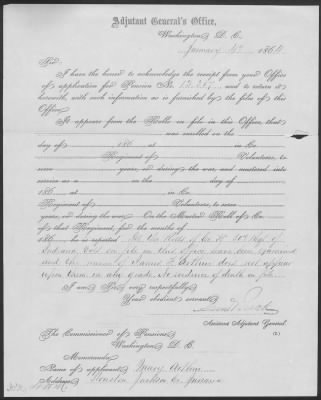 Adjutant General's Office,
Washington, D. C.
January 4th 1864
Sir:
I have the honor to acknowledge the receipt from your Office
of application for Pension No. and to return it
herewith, with such information as is furnished by the files of this
Office.
It appears from the Rolls on file in this Office, that
was enrolled on the
day of 186 at in Co.
Regiment of Volunteers, to
serve years, or during the war, and mustered into
service as a on the day of
186 at in Co.
Regiment of Volunteers, to serve
years, or during the war. On the Muster Roll of Co.
of that Regiment, for the months of
186 he is reported The Rolls of Co. "H" 50th Regt of
Indiana Vols on file in this Office have been examined
and the name of Samuel F. does not appear
upon them in any grade. No evidence of death on file.
I am, Sir, very respectfully,
Your obedient servant,
Assistant Adjutant General.
The Commissioner of Pensions,
Washington, D. C.
Memoranda.
Name of applicant, Mary
Address, Houston Jackson Co. Indiana